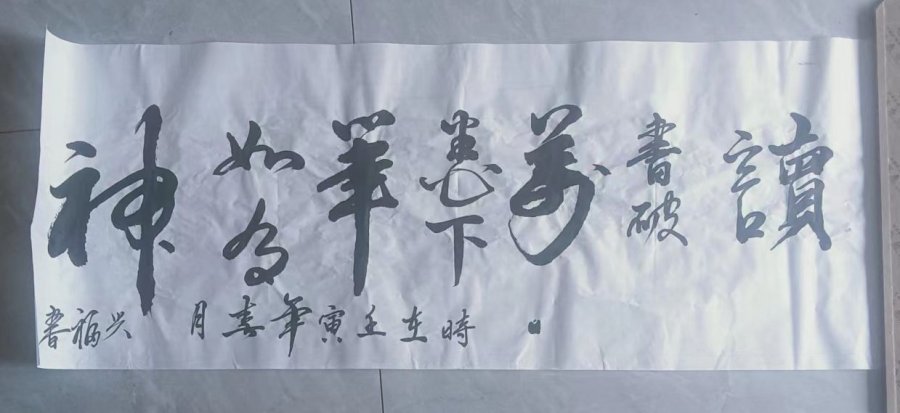 讀書破萬卷下筆如有神
時在壬寅年春月 兴福書